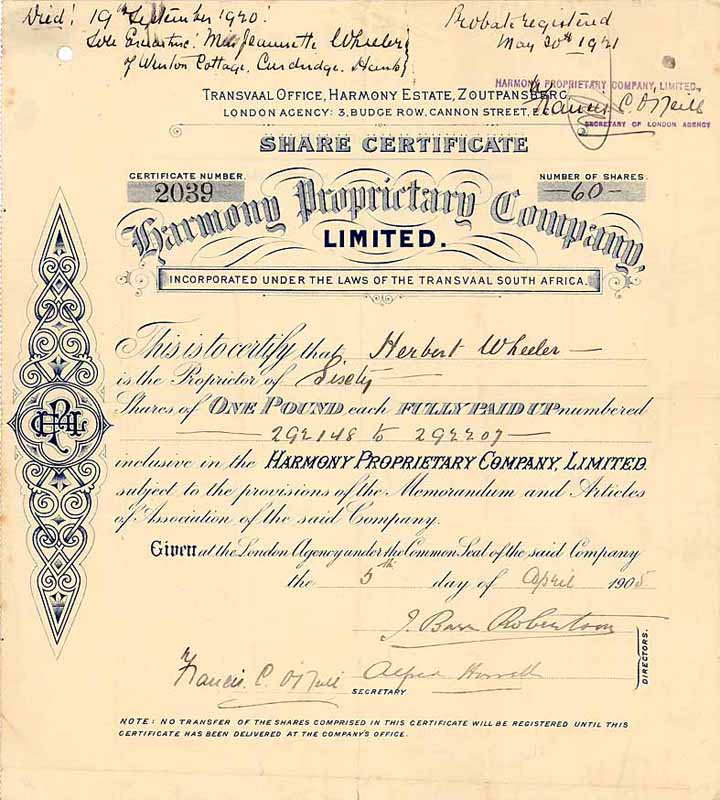 Died! 19th September 1920.
Sole Executrix: Mrs Jeannette Wheeler
of Winton Cottage, Curdridge, Hants
Probate registered
May 30th 1921
HARMONY PROPRIETARY COMPANY, LIMITED.
Francis C. O'Neill
SECRETARY OF LONDON AGENCY
TRANSVAAL OFFICE, HARMONY ESTATE, ZOUTPANSBERG.
LONDON AGENCY: 3, BUDGE ROW, CANNON STREET, E.C.
SHARE CERTIFICATE
CERTIFICATE NUMBER.
2039
NUMBER OF SHARES.
—60—
Harmony Proprietary Company,
LIMITED.
INCORPORATED UNDER THE LAWS OF THE TRANSVAAL SOUTH AFRICA.
This is to certify that Herbert Wheeler —
is the Proprietor of Sixty
Shares of ONE POUND each FULLY PAID UP numbered
— 292148 to 292207 —
inclusive in the HARMONY PROPRIETARY COMPANY, LIMITED.
subject to the provisions of the Memorandum and Articles
of Association of the said Company.
Given at the London Agency under the Common Seal of the said Company
the 5th day of April 1905
J. Barr Robertson
Francis C. O'Neill Alfred
SECRETARY
DIRECTORS.
NOTE: NO TRANSFER OF THE SHARES COMPRISED IN THIS CERTIFICATE WILL BE REGISTERED UNTIL THIS
CERTIFICATE HAS BEEN DELIVERED AT THE COMPANY'S OFFICE.